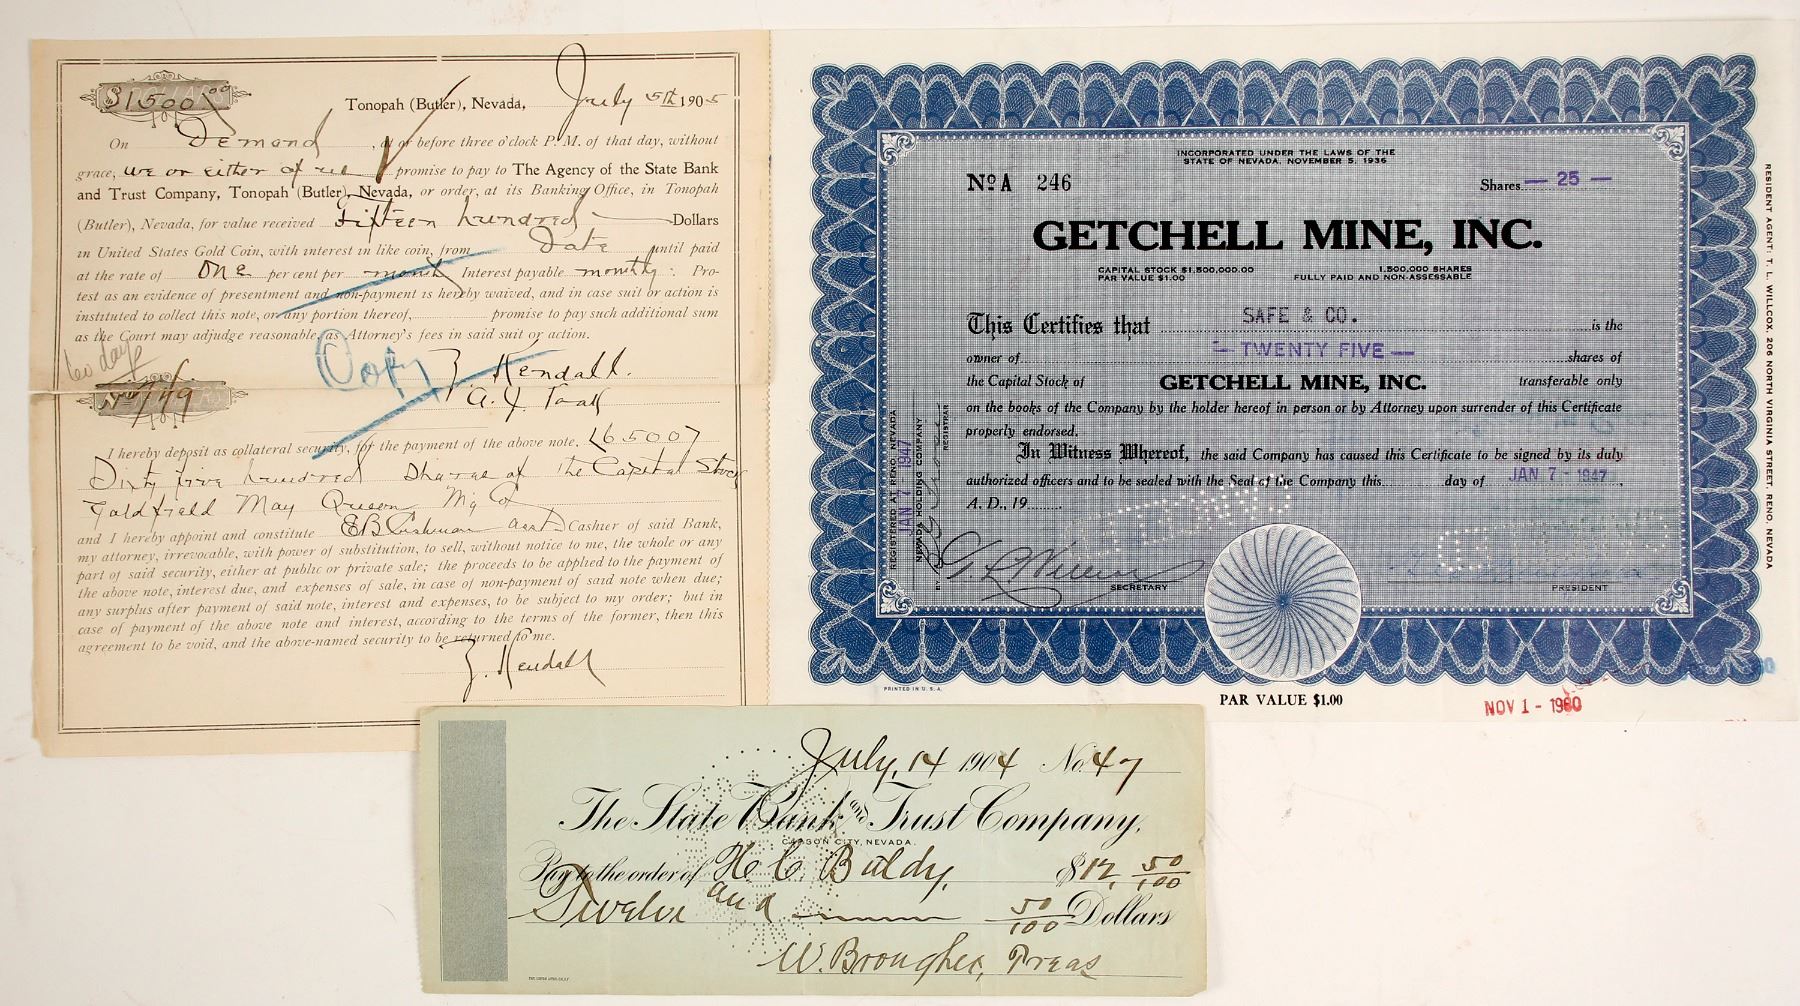 $1500 00
Tonopah (Butler), Nevada, July 5th 1905
On Demand, at or before three o'clock P. M. of that day, without
grace, we or either of us promise to pay to The Agency of the State Bank
and Trust Company, Tonopah (Butler), Nevada, or order, at its Banking Office, in Tonopah
(Butler), Nevada, for value received Fifteen hundred Dollars
in United States Gold Coin, with interest in like coin, from Date until paid
at the rate of One per cent per month Interest payable monthly. Pro-
test as an evidence of presentment and non-payment is hereby waived, and in case suit or action is
instituted to collect this note, or any portion thereof, promise to pay such additional sum
as the Court may adjudge reasonable, as Attorney's fees in said suit or action.
60 days
Copy
Z. Kendall.
No. 749
I hereby deposit as collateral security, for the payment of the above note, (6500)
Sixty five hundred Shares of the Capital Stock
Goldfield May Queen Mg Co
and I hereby appoint and constitute E B Cushman asst Cashier of said Bank,
my attorney, irrevocable, with power of substitution, to sell, without notice to me, the whole or any
part of said security, either at public or private sale; the proceeds to be applied to the payment of
the above note, interest due, and expenses of sale, in case of non-payment of said note when due;
any surplus after payment of said note, interest and expenses, to be subject to my order; but in
case of payment of the above note and interest, according to the terms of the former, then this
agreement to be void, and the above-named security to be returned to me.
Z. Kendall
INCORPORATED UNDER THE LAWS OF THE
STATE OF NEVADA, NOVEMBER 5, 1936
No A 246
Shares — 25 —
GETCHELL MINE, INC.
CAPITAL STOCK $1,500,000.00
PAR VALUE $1.00
1,500,000 SHARES
FULLY PAID AND NON-ASSESSABLE
This Certifies that SAFE & CO. is the
owner of — TWENTY FIVE — shares of
the Capital Stock of GETCHELL MINE, INC. transferable only
on the books of the Company by the holder hereof in person or by Attorney upon surrender of this Certificate
properly endorsed.
In Witness Whereof, the said Company has caused this Certificate to be signed by its duly
authorized officers and to be sealed with the Seal of the Company this day of JAN 7 - 1947,
A. D., 19
CANCELLED
CANCELLED
SECRETARY
PRESIDENT
REGISTERED AT RENO, NEVADA
JAN 7 - 1947
NEVADA HOLDING COMPANY
REGISTRAR
BY
RESIDENT AGENT: T. L. WILLCOX, 206 NORTH VIRGINIA STREET, RENO, NEVADA
PRINTED IN U. S. A.
PAR VALUE $1.00
NOV 1 - 1960
July, 14 1904 No. 47
The State Bank and Trust Company,
CARSON CITY, NEVADA.
Pay to the order of H. C. Baldy, $12, 50/100
Twelve and 50/100 Dollars
W. Brougher, Treas